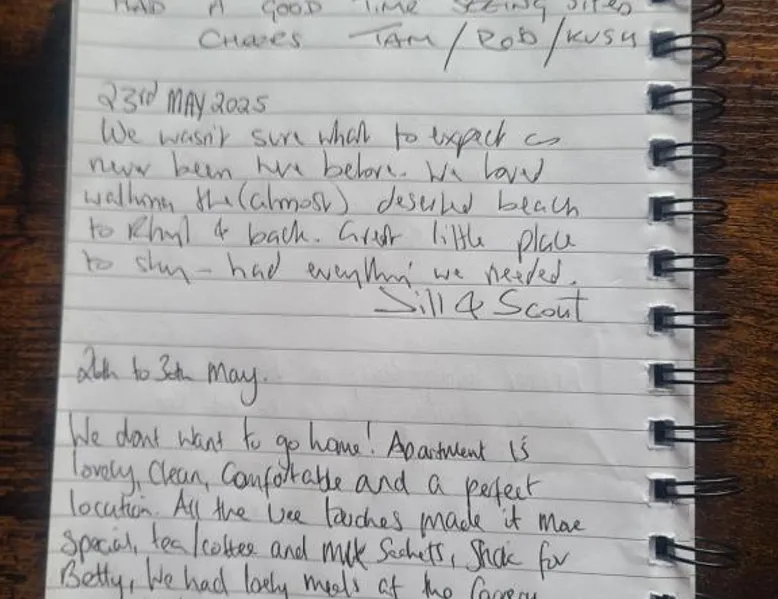 HAD A GOOD TIME SEEING SITES
TAM/ROB/KUSH
23rd MAY 2025
We wasn't sure what to expect as
never been here before. We loved
walking the (almost) deserted beach
to Rhyl & back. Great little place
to stay - had everythin' we needed.
Jill & Scout
26th to 30th May.
We dont want to go home! Apartment is
lovely, Clean, Comfortable and a perfect
location. All the wee touches made it more
special, tea/coffee and milk Sachets, Snack for
Betty, We had lovely meals at the